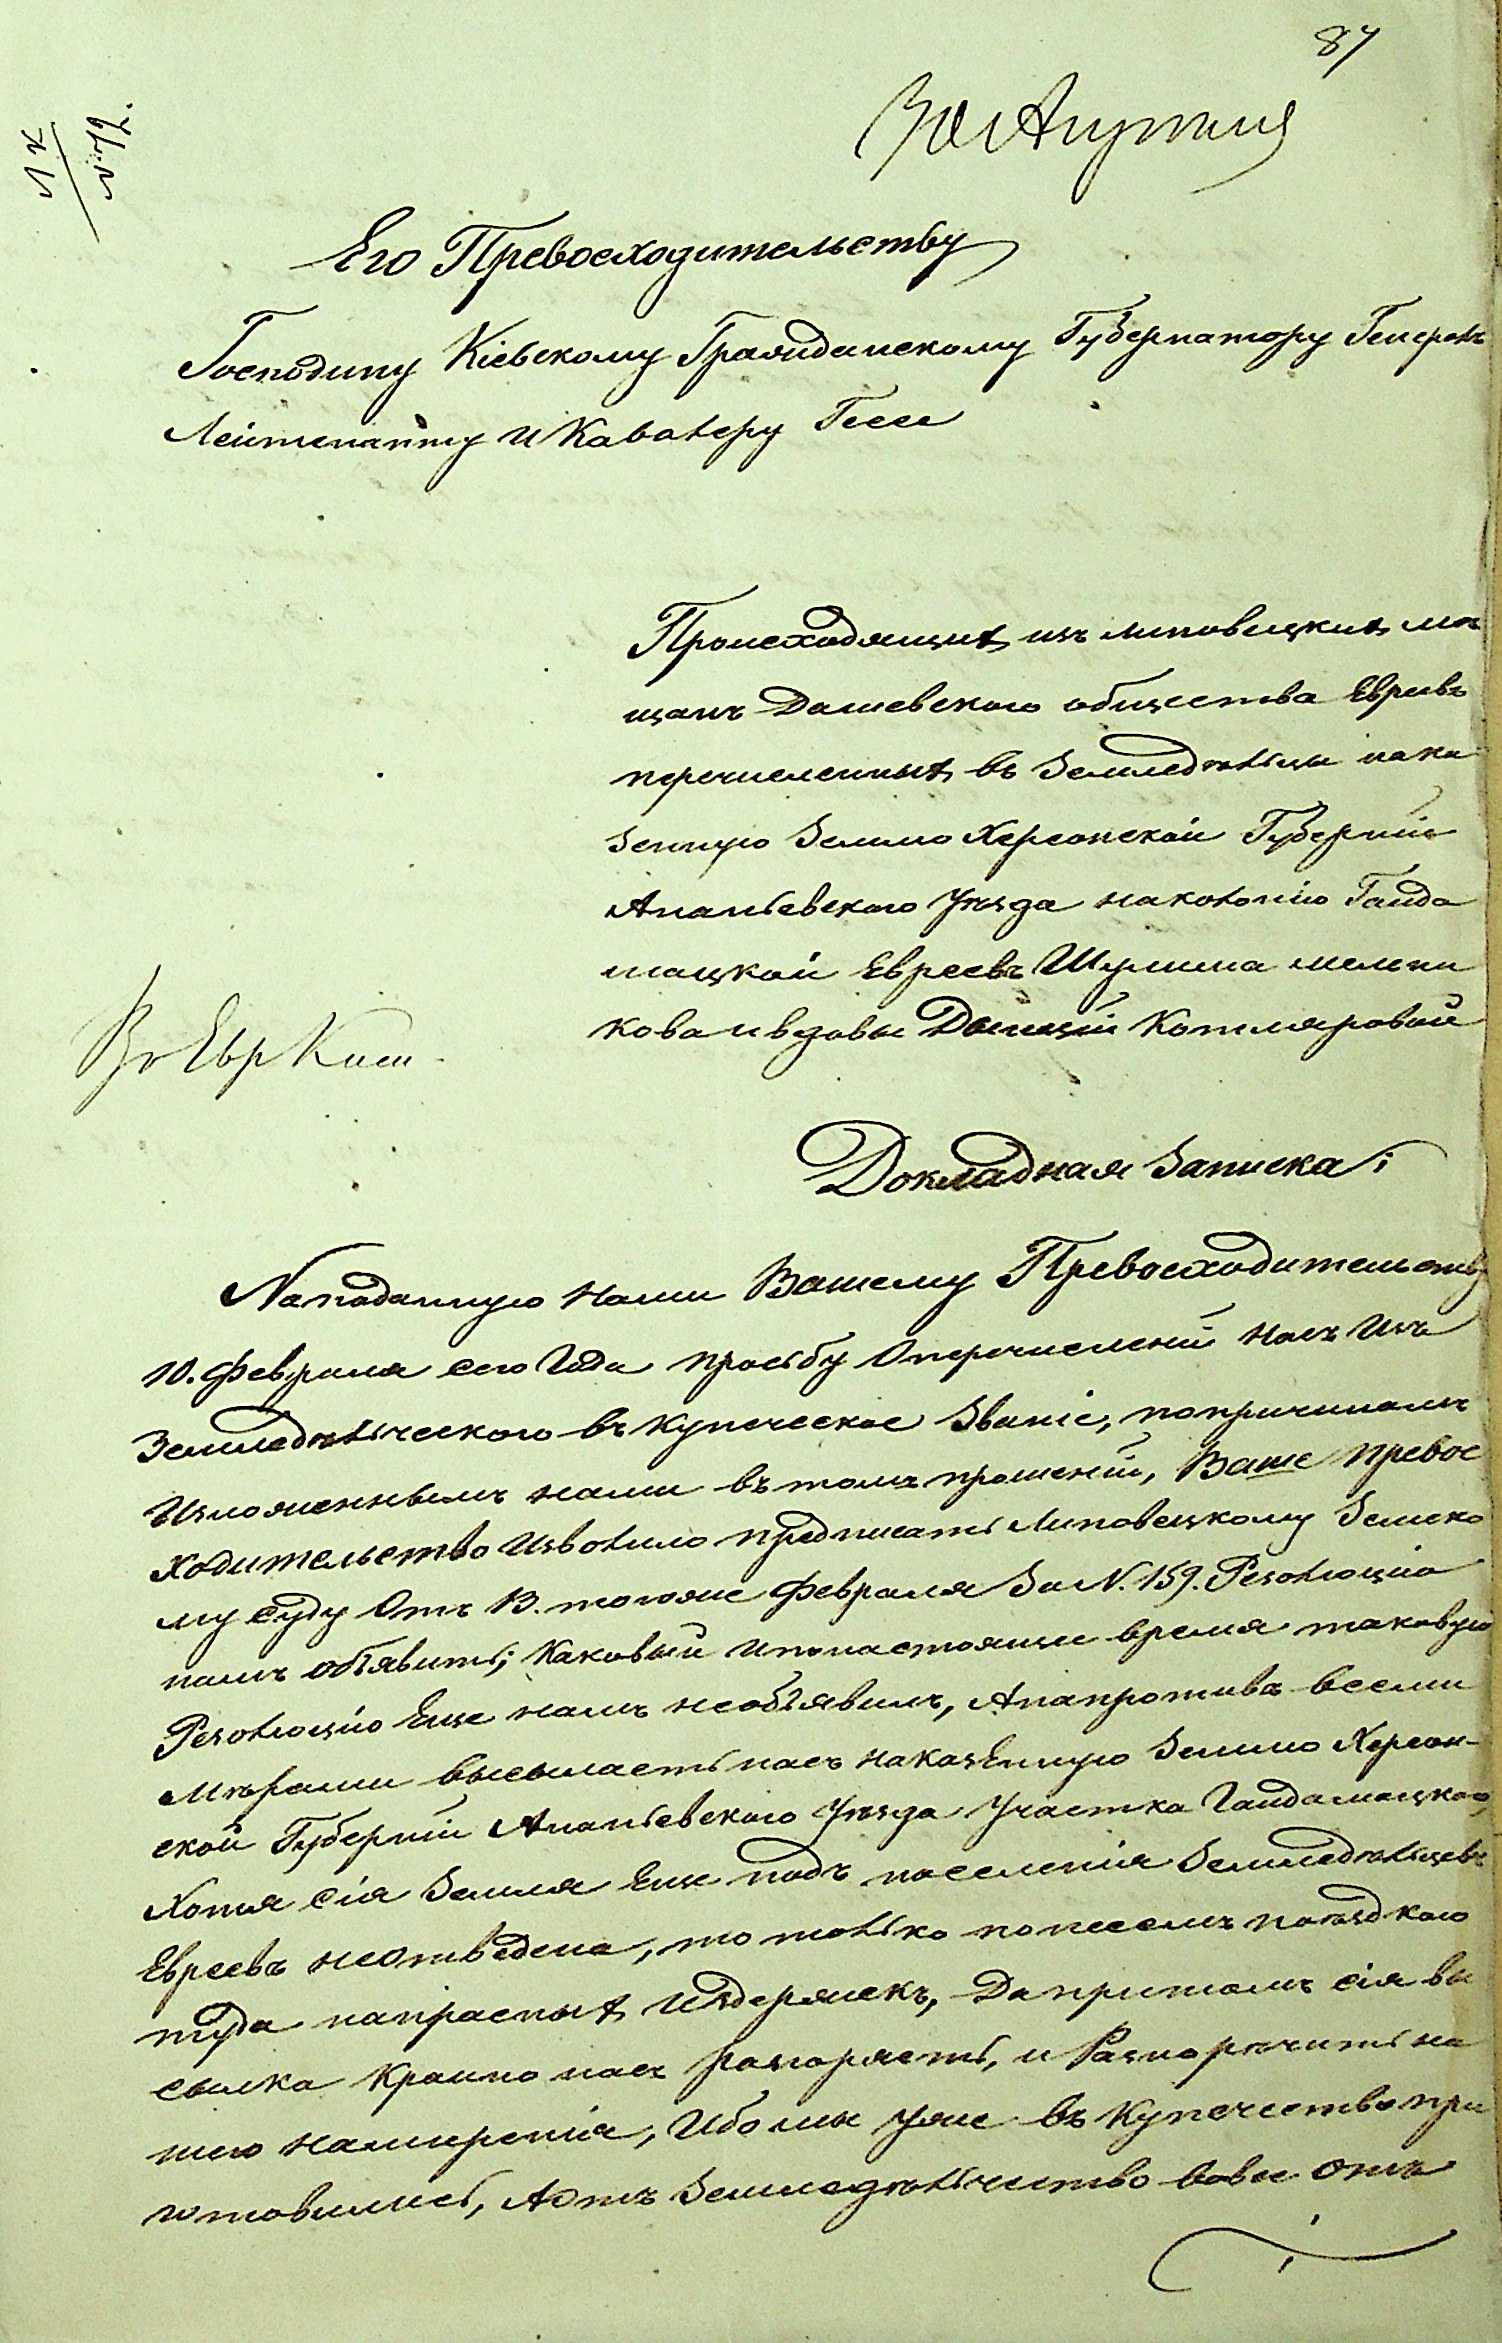 87
30 Августа
Его Превосходительству
Господину Кіевскому Гражданскому Губернатору Генералъ
Лейтенанту и Кавалеру Гессе
Происходящихъ изъ липовецкихъ мѣ
щанъ Дашевского общества Евреевъ
перечисленныхъ въ Земледѣльцы на ка
зенную Землю Херсонской Губерніи
Ананьевского Уѣзда на колонію Гайда
мацкой Евреевъ Шулима мельни
кова и вдовы Котляровой
Въ Евр Ком
Докладная Записка;
На поданную нами Вашему Превосходительству
10. Февраля сего Года прозьбу О перечисленіи насъ Изъ
Земледѣльческого въ купеческое Званіе, по причинамъ
Изложеннымъ нами въ томъ прошеніи, Ваше Превос
ходительство Изволило предписать Липовецкому Земско
му Суду Отъ 13. тогоже Февраля За N. 159. Резолюцію
намъ объявить; Каковый и по настоящее время таковую
Резолюцію Еще намъ необъявилъ, А напротивъ всеми
Мѣрами высылаетъ насъ на казенную Землю Херсон-
ской Губерніи Ананьевского Уѣзда Участка Гайдамацкого,
Хотя сія Земля Еще подъ поселенія Земледѣльцевъ
Евреевъ не отведена, то только понесемъ поѣздкою
туда напрасныхъ Издержекъ, Да притомъ сія вы
сылка Крайно насъ разоряетъ, и Разпорѣчитъ на
шего намиренія, Ибо мы уже въ Купечество при
готовились, А отъ Земледѣльчество вовсе отъ